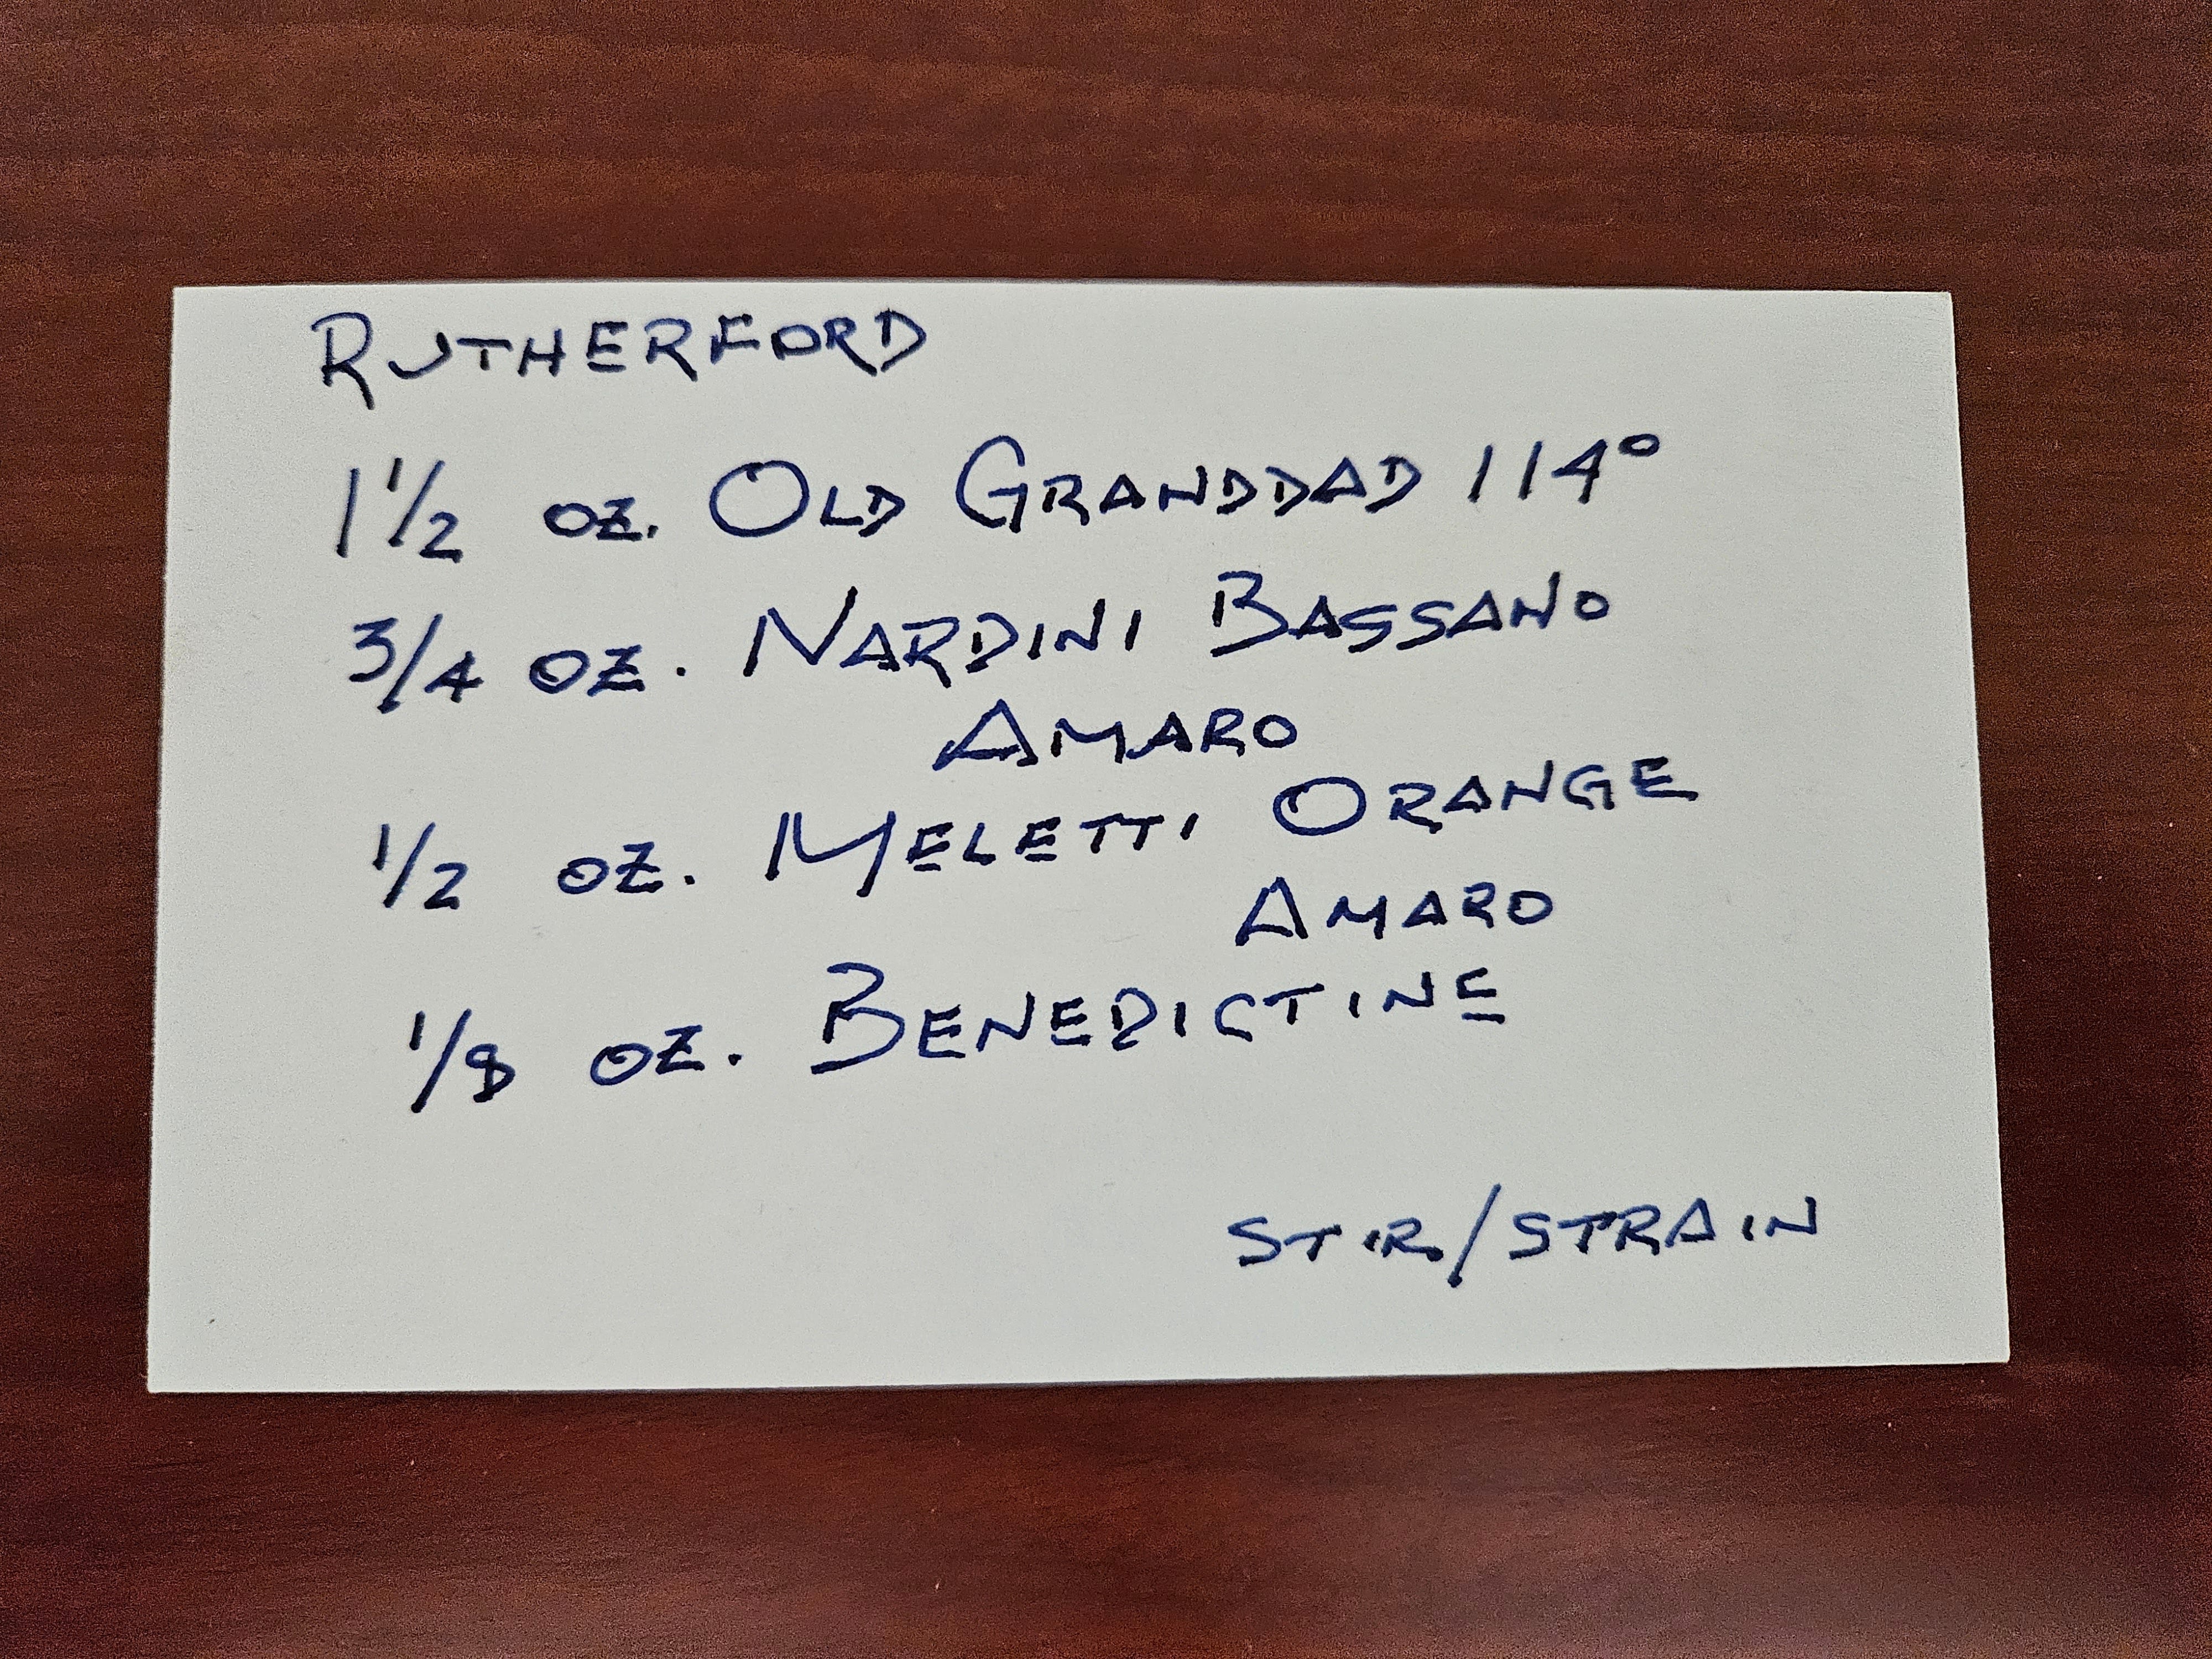 RUTHERFORD
1 1/2 OZ. OLD GRANDDAD 114°
3/4 OZ. NARDINI BASSANO
AMARO
1/2 OZ. MELETTI ORANGE
AMARO
1/8 OZ. BENEDICTINE
STIR/STRAIN